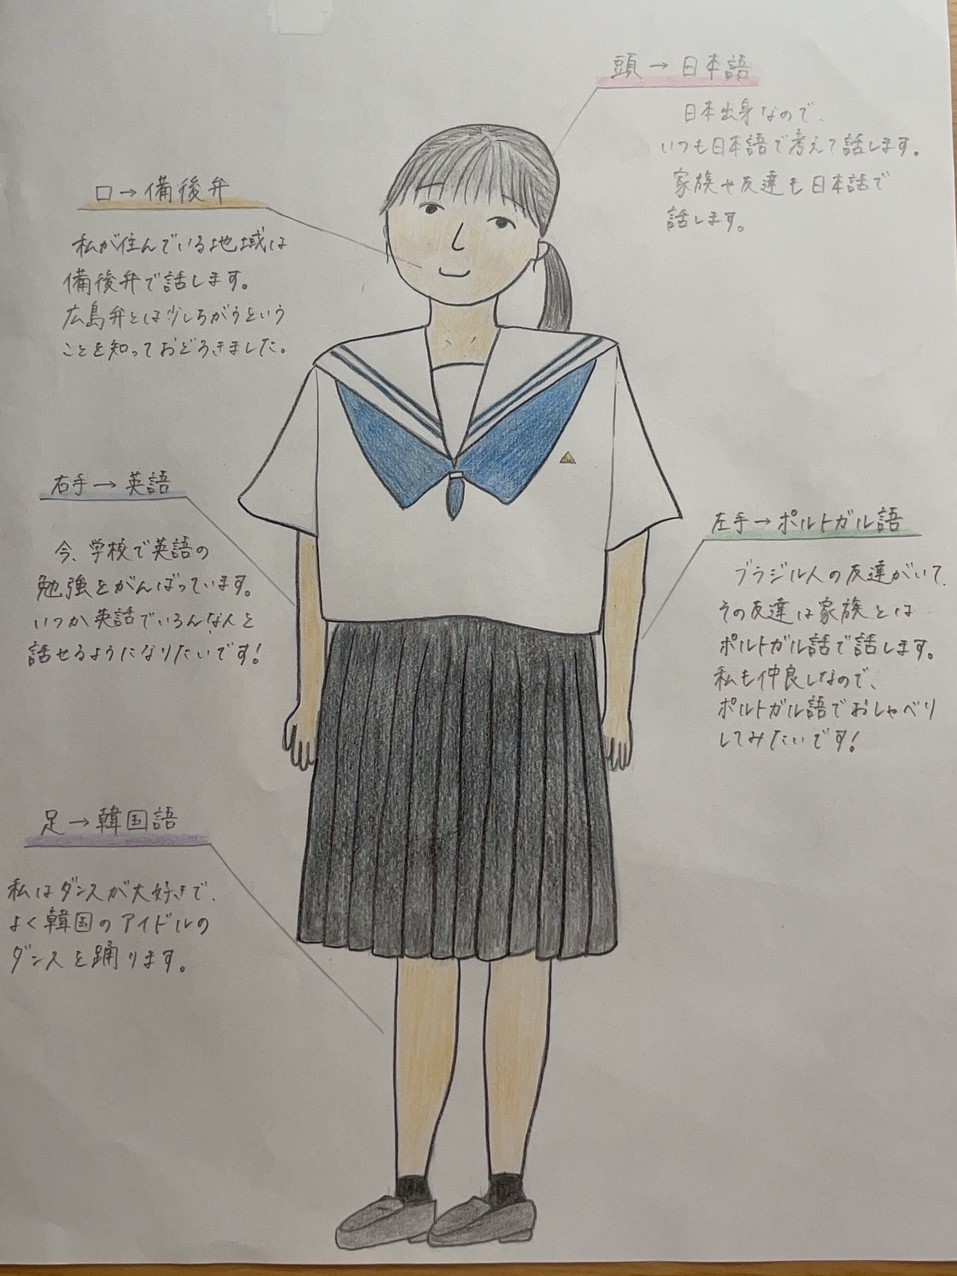 頭→日本語
日本出身なので、
いつも日本語で考えて話します。
家族や友達も日本語で
話します。
口→備後弁
私が住んでいる地域は
備後弁で話します。
広島弁とは少しちがうという
ことを知っておどろきました。
右手→英語
今、学校で英語の
勉強をがんばっています。
いつか英語でいろんな人と
話せるようになりたいです!
左手→ポルトガル語
ブラジル人の友達がいて、
その友達は家族とは
ポルトガル語で話します。
私も仲良しなので、
ポルトガル語でおしゃべり
してみたいです!
足→韓国語
私はダンスが大好きで、
よく韓国のアイドルの
ダンスを踊ります。